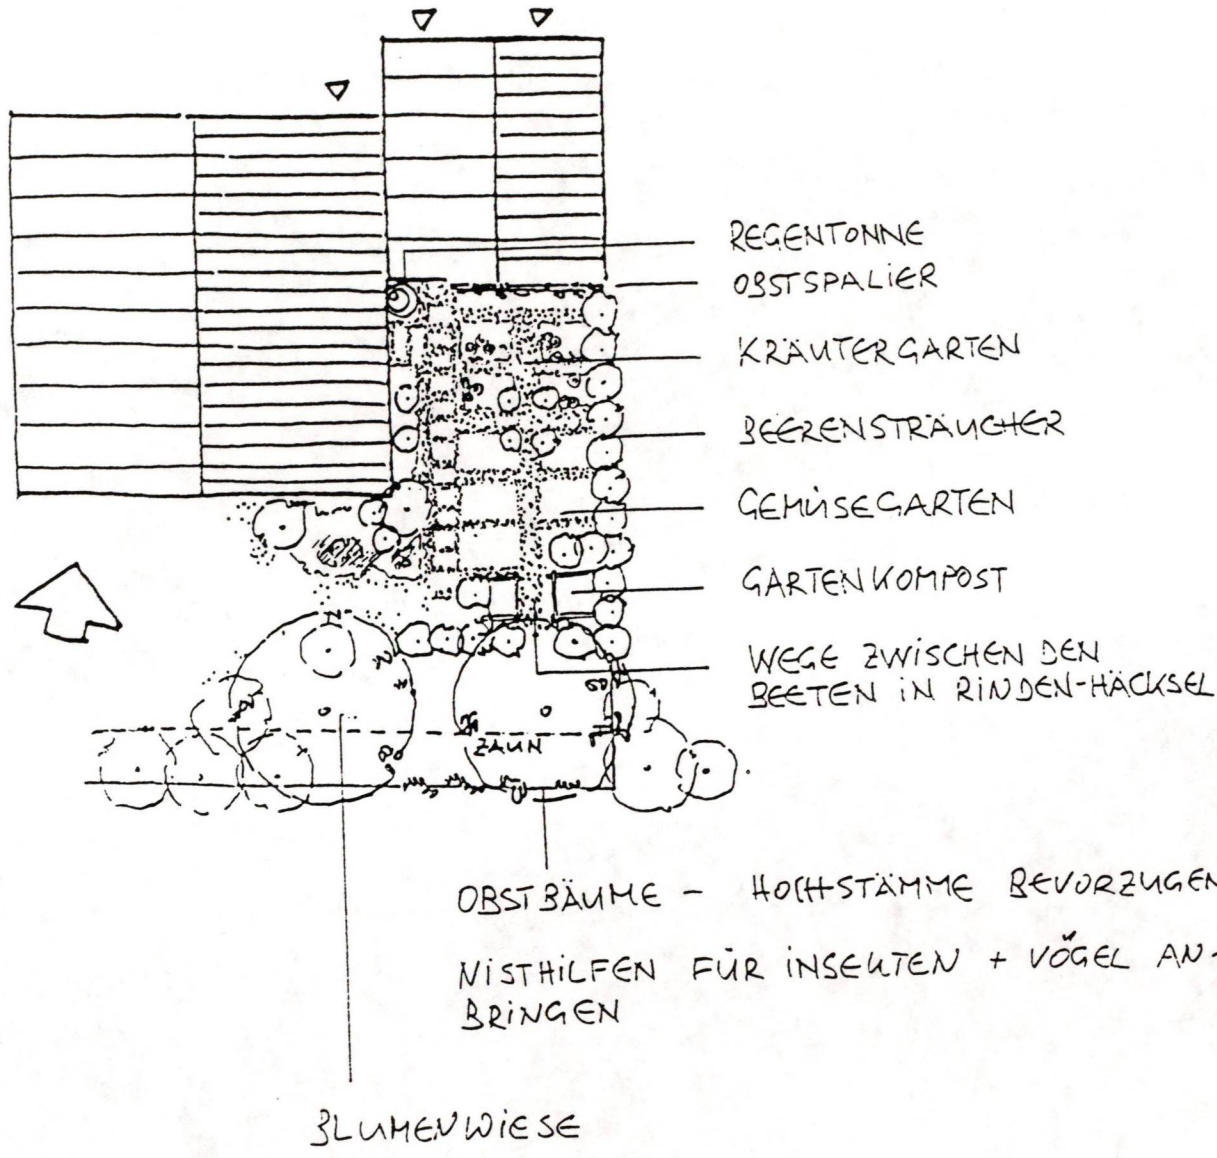 REGENTONNE
OBSTSPALIER
KRÄUTERGARTEN
BEERENSTRÄUCHER
GEMÜSEGARTEN
GARTENKOMPOST
WEGE ZWISCHEN DEN
BEETEN IN RINDEN-HÄCKSEL
ZAUN
OBSTBÄUME - HOCHSTÄMME BEVORZUGEN
NISTHILFEN FÜR INSEKTEN + VÖGEL AN-
BRINGEN
BLUMENWIESE